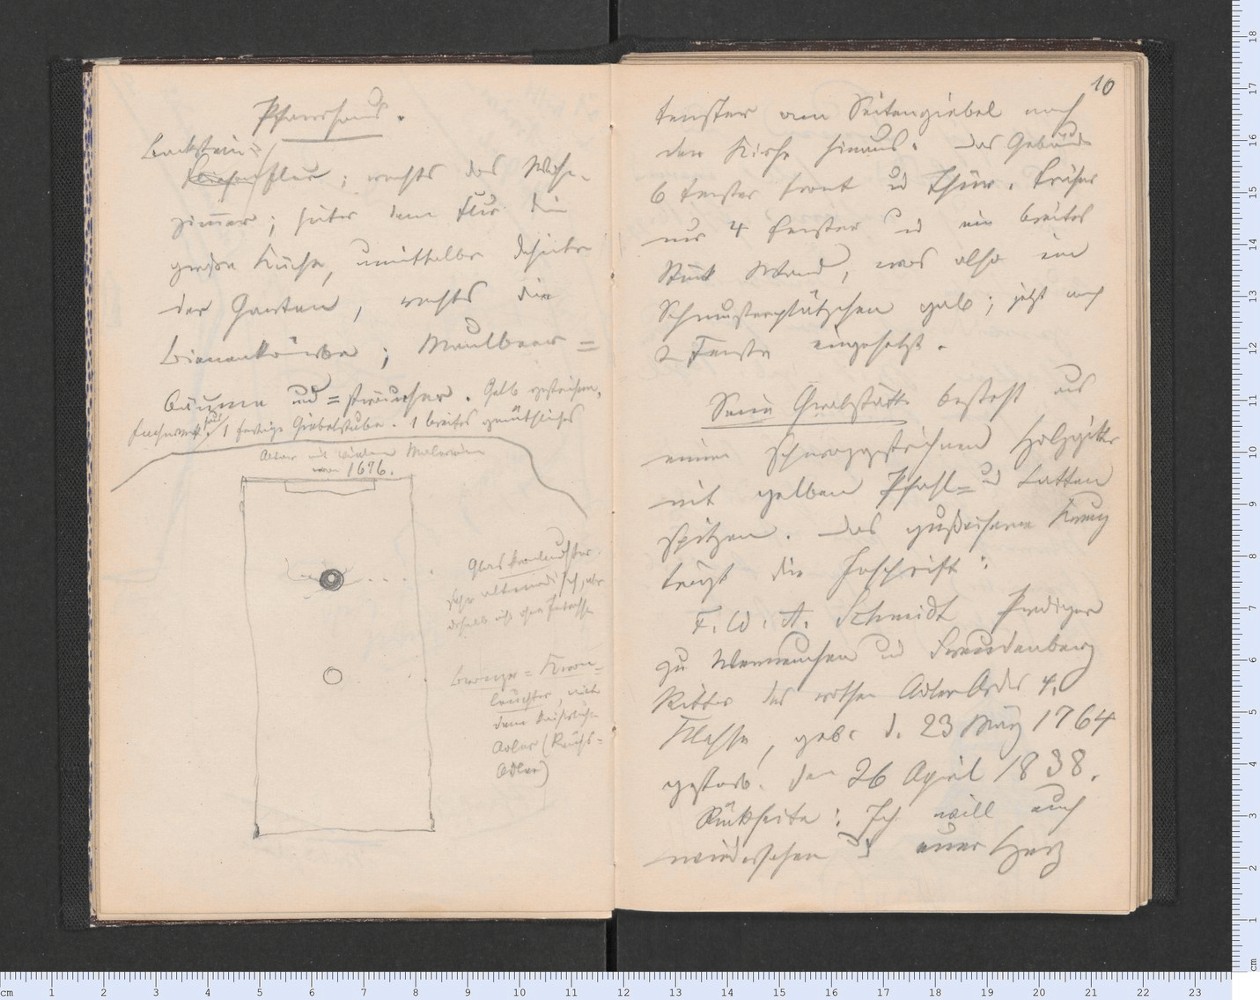 Pfarrhaus.
Backstein=
Fliesenflur; rechts das Wohn-
zimmer; hinter dem Flur die
große Küche, unmittelbar dahinter
der Garten, rechts die
Bienenkörbe; Maulbeer=
bäume und =sträucher. Gelb gestrichen,
Fachwerkhaus, 1 fenstrige Giebelstube. 1 breites gemüthliches
Altar mit Malereien
von 1696.
Glaskronleuchter.
sehr altmodisch, aber
deshalb nicht ohne Interesse
Bronze=Kron=
leuchter, mit
dem Kaiserlichen
Adler (Reichs=
Adler)
10
Fenster am Seitengiebel nach
der Kirche hinaus. Das Gebäude
6 Fenster Front und Thür. Früher
nur 4 Fenster und ein breites
Stück Wand, was also ein
gab; jetzt noch
2 Fenster eingesetzt.
Seine Grabstätte besteht aus
einem schwarzgestrichnen Holzgitter
mit gelben Pfahl= und Latten
spitzen. Das gußeiserne Kreuz
trägt die Inschrift:
F. W. A. Schmidt Prediger
zu Werneuchen und Freudenberg
Ritter des rothen Adler Ordens 4.
Klasse, geb. d. 23 März 1764
gestorb. den 26 April 1838.
Rückseite: Ich will euch
wiedersehen und euer Herz